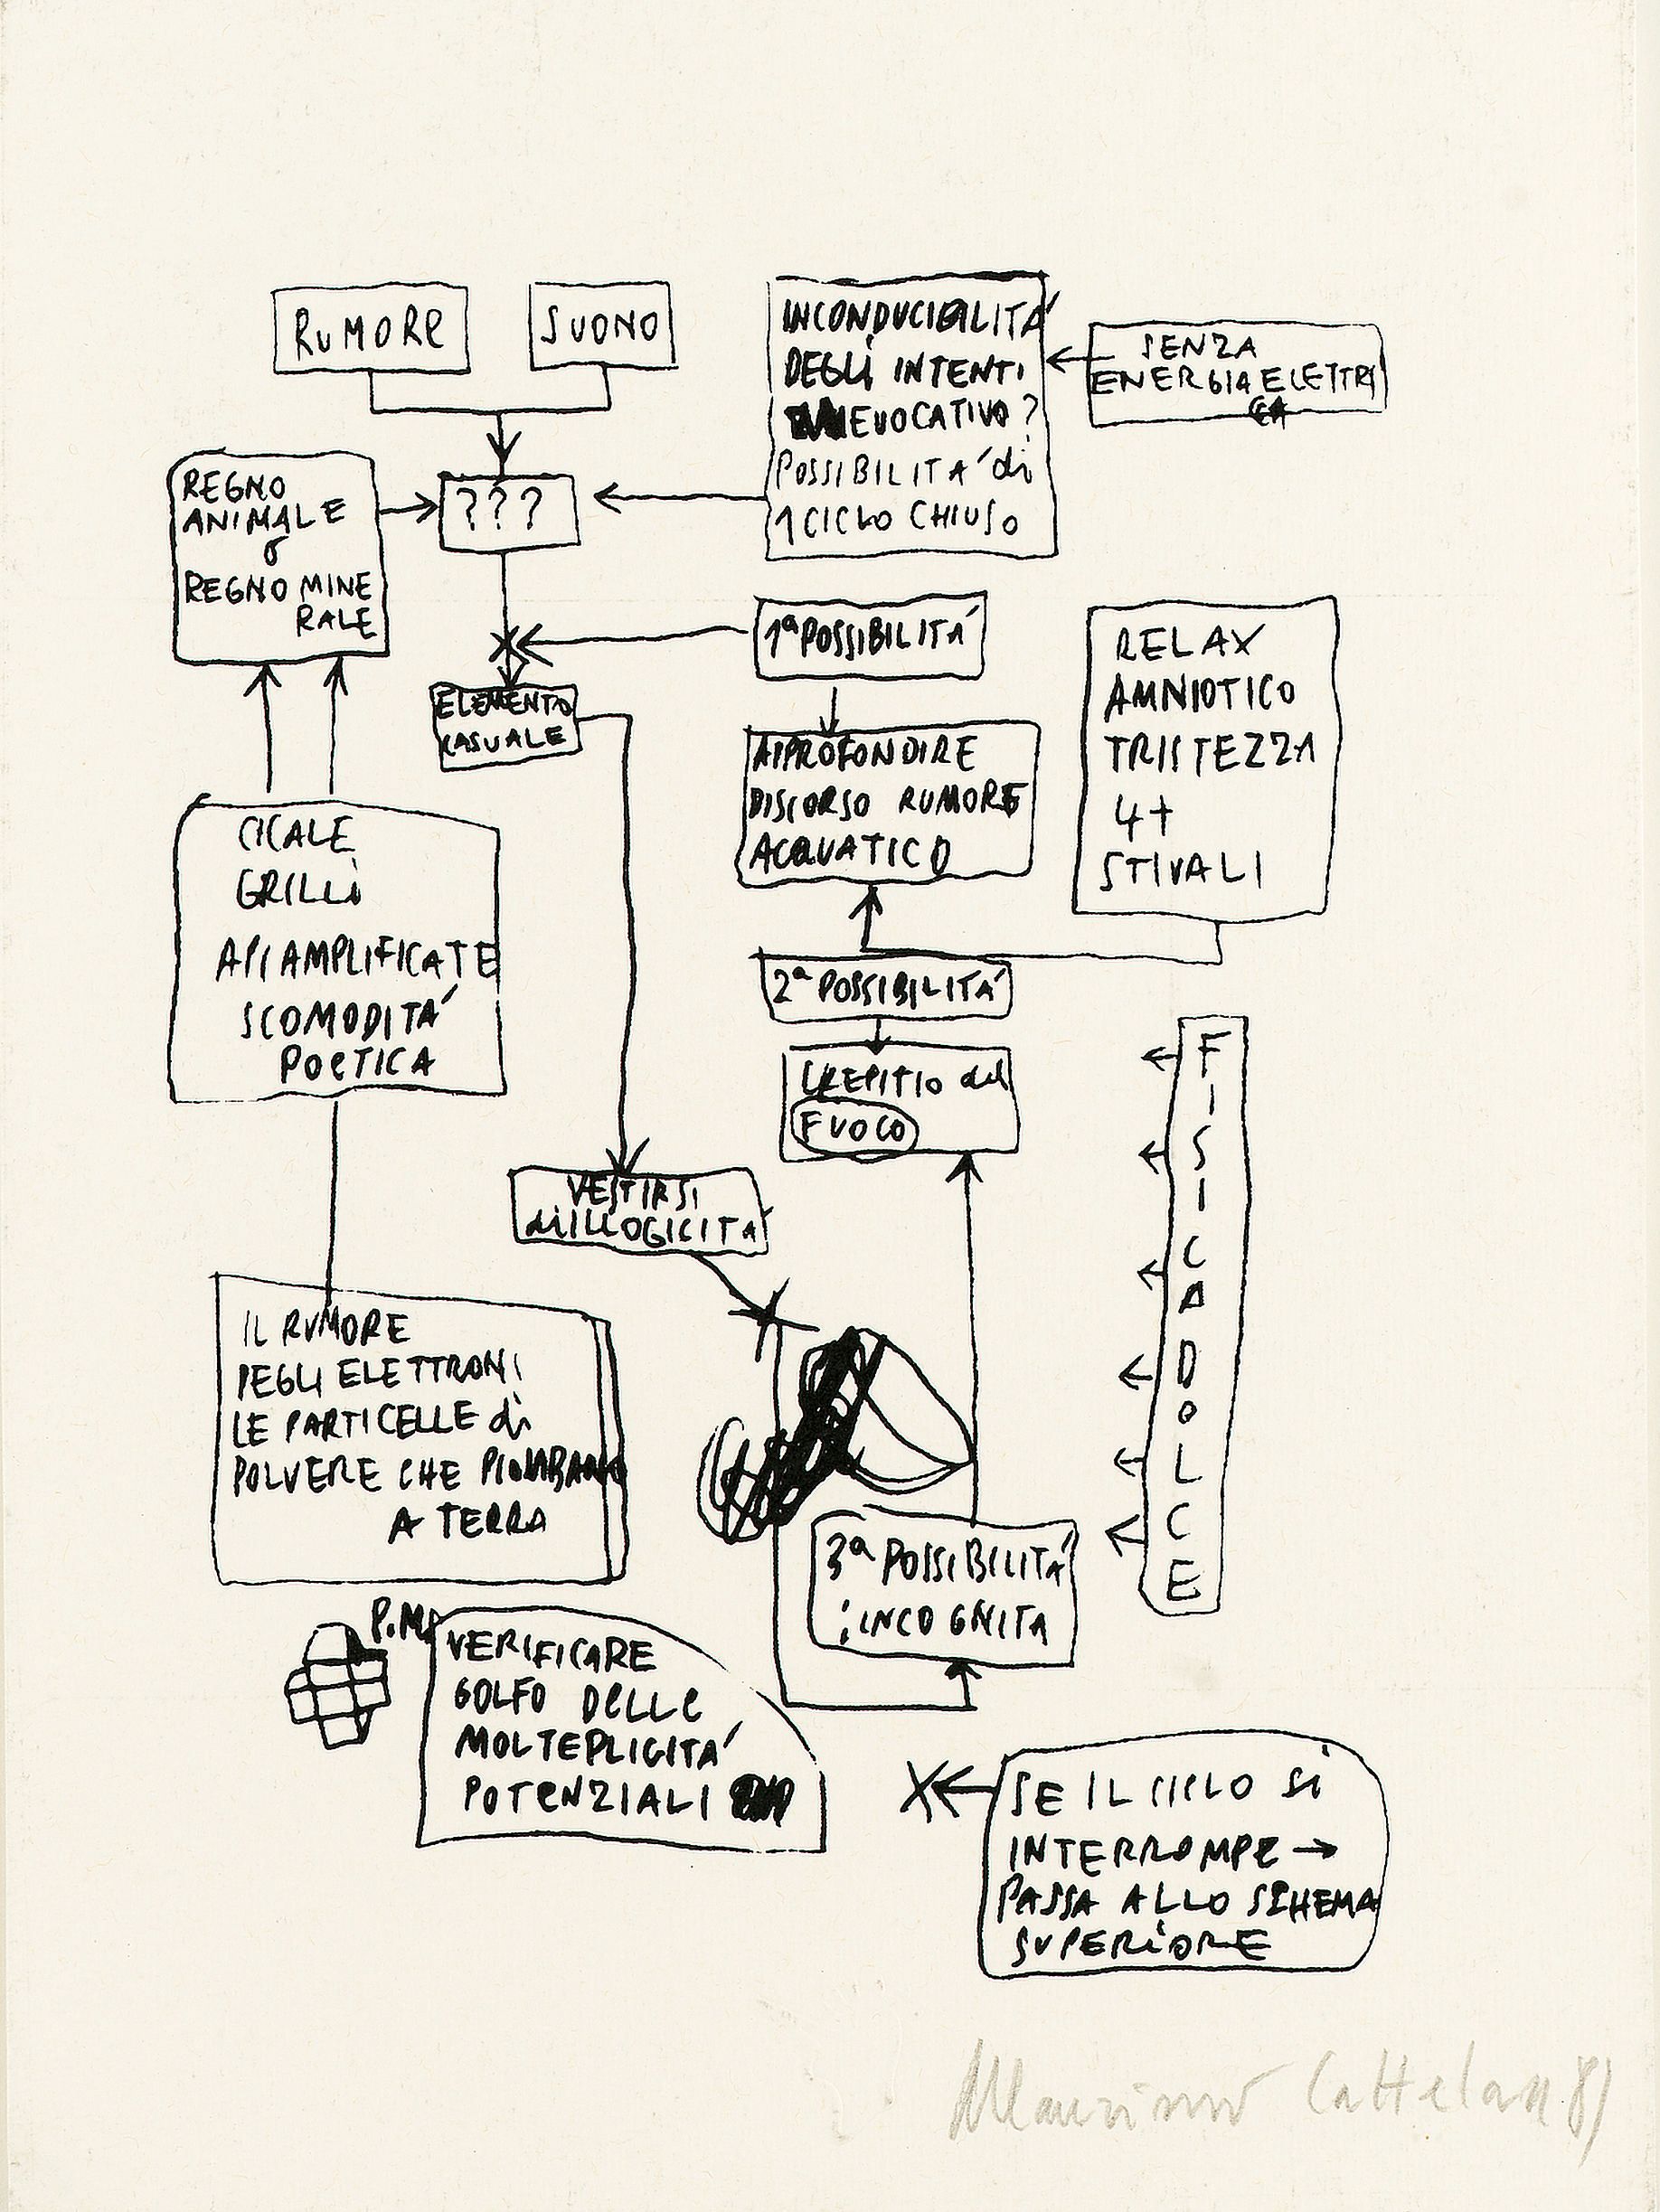 RUMORE
SUONO
INCONDUCIBILITÁ
DEGLI INTENTI
EVOCATIVO?
POSSIBILITÁ di
1 CICLO CHIUSO
SENZA
ENERGIA ELETTRI
CA
REGNO
ANIMALE
o
REGNO MINE
RALE
???
1ª POSSIBILITÁ
ELEMENTO
CASUALE
APPROFONDIRE
DISCORSO RUMORE
ACQUATICO
RELAX
AMNIOTICO
TRISTEZZA
4+
STIVALI
CICALE
GRILLI
API AMPLIFICATE
SCOMODITÁ
POETICA
2ª POSSIBILITÁ
CREPITIO del
FUOCO
FISICA DOLCE
VESTIRSI
di ILLOGICITÁ
IL RUMORE
DEGLI ELETTRONI
LE PARTICELLE di
POLVERE CHE PIOMBANO
A TERRA
3ª POSSIBILITÁ
: INCOGNITA
P.M.
VERIFICARE
GOLFO DELLE
MOLTEPLICITÁ
POTENZIALI
SE IL CICLO SI
INTERROMPE →
PASSA ALLO SCHEMA
SUPERIORE
Maurizio Cattelan